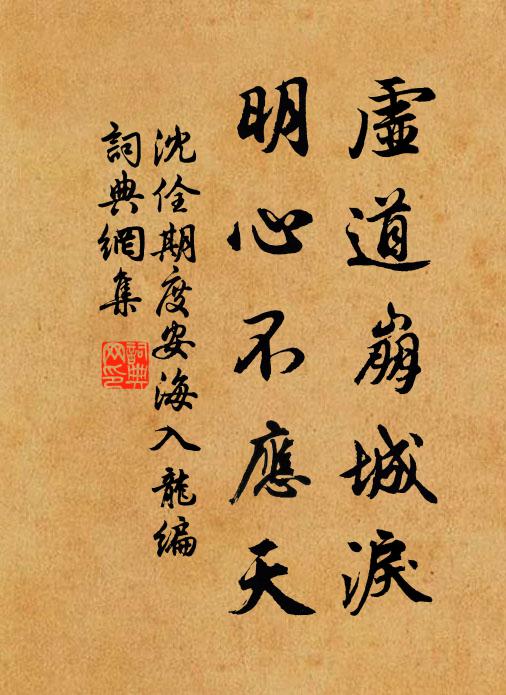 虛道崩城淚
明心不應天
沈佺期度安海入龍編
詞典網集
詞典網印